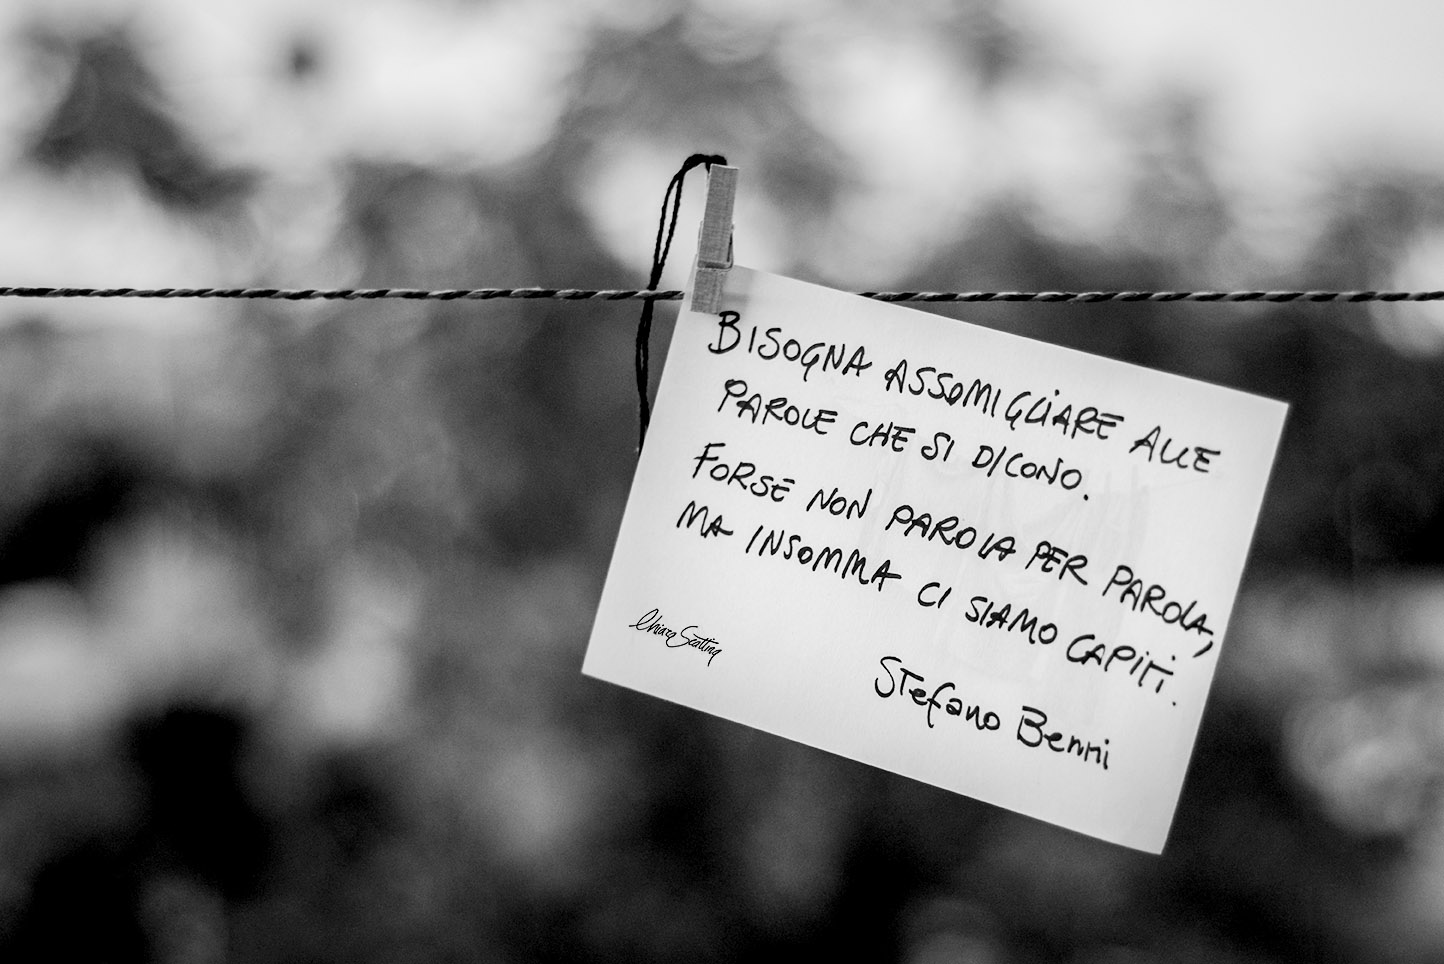 BISOGNA ASSOMIGLIARE ALLE
PAROLE CHE SI DICONO.
FORSE NON PAROLA PER PAROLA,
MA INSOMMA CI SIAMO CAPITI.
Stefano Benni
Chiara Scattina